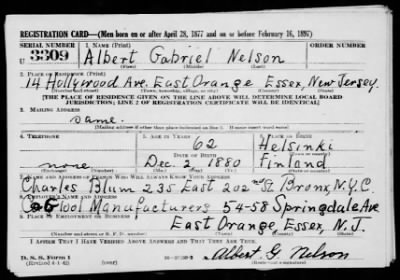 REGISTRATION CARD—(Men born on or after April 28, 1877 and on or before February 16, 1897)
SERIAL NUMBER
1. NAME (Print)
U 3309
Albert Gabriel Nelson
(First) (Middle) (Last)
2. PLACE OF RESIDENCE (Print)
14 Hollywood Ave. East Orange Essex, New Jersey.
(Number and street) (Town, township, village, or city) (County) (State)
[THE PLACE OF RESIDENCE GIVEN ON THE LINE ABOVE WILL DETERMINE LOCAL BOARD
JURISDICTION; LINE 2 OF REGISTRATION CERTIFICATE WILL BE IDENTICAL]
3. MAILING ADDRESS
Same.
[Mailing address if other than place indicated on line 2. If same insert word same]
4. TELEPHONE
5. AGE IN YEARS
6. PLACE OF BIRTH
62
Helsinki
DATE OF BIRTH
none
Dec. 2 1880
Finland
(Exchange) (Number) (Mo.) (Day) (Yr.) (State or country)
7. NAME AND ADDRESS OF PERSON WHO WILL ALWAYS KNOW YOUR ADDRESS
Charles Blum 235 East 202nd St. Bronx, N.Y.C.
8. EMPLOYER'S NAME AND ADDRESS
Tool Manufacturers 54-58 Springdale Ave
9. PLACE OF EMPLOYMENT OR BUSINESS
East Orange, Essex, N.J.
(Number and street or R. F. D. number) (Town) (County) (State)
I AFFIRM THAT I HAVE VERIFIED ABOVE ANSWERS AND THAT THEY ARE TRUE.
D. S. S. Form 1
(Revised 4-1-42) (over)
Albert G. Nelson
(Registrant's signature)